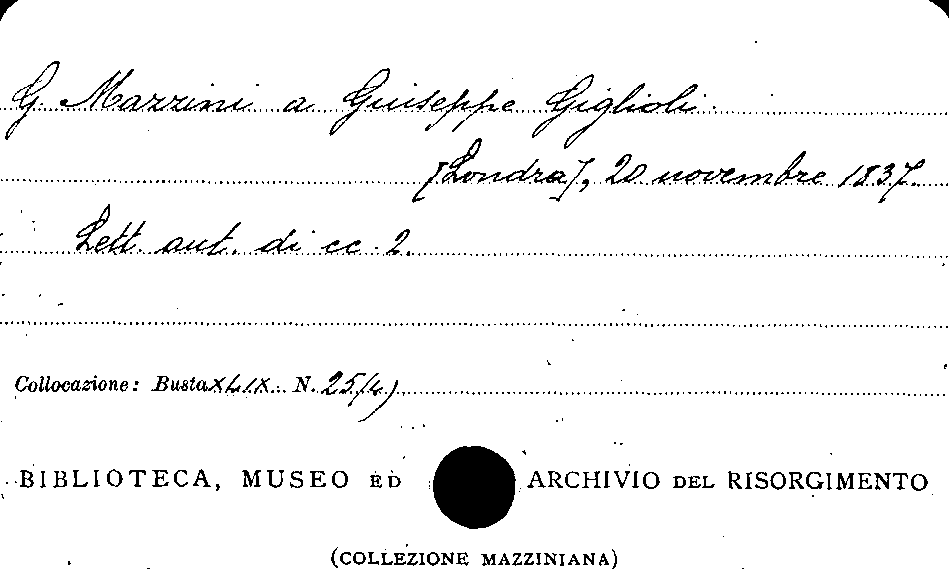 G. Mazzini a Giuseppe Giglioli.
[Londra], 20 novembre 1837.
Lett. aut. di cc. 2.
Collocazione: Busta XLIX N. 25(4)
BIBLIOTECA, MUSEO ED ARCHIVIO DEL RISORGIMENTO
(COLLEZIONE MAZZINIANA)